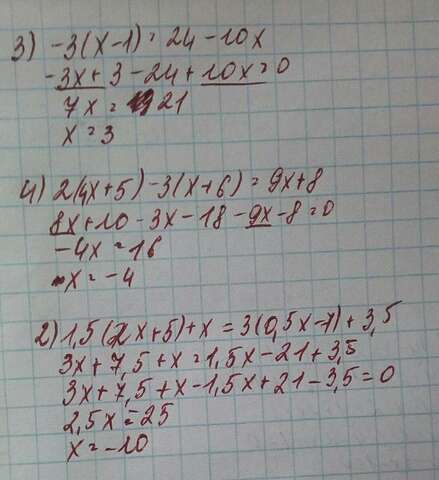 3) -3(x-1)=24-10x
-3x+3-24+10x=0
7x=21
x=3
4) 2(4x+5)-3(x+6)=9x+8
8x+10-3x-18-9x-8=0
-4x=16
x=-4
2) 1,5(2x+5)+x=3(0,5x-7)+3,5
3x+7,5+x=1,5x-21+3,5
3x+7,5+x-1,5x+21-3,5=0
2,5x=25
x=-10